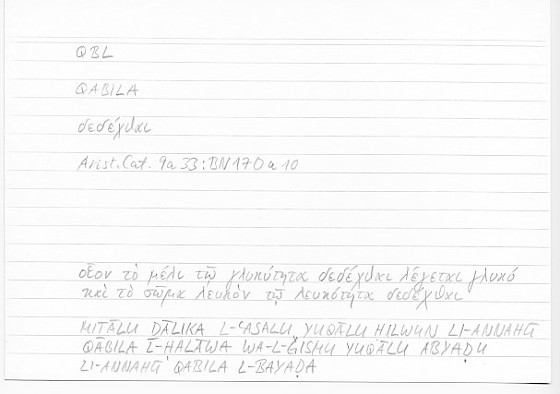 QBL
QABILA
δεδέχθαι
Arist. Cat. 9a33: BN 170a10
οἷον τὸ μέλι τῷ γλυκύτητα δεδέχθαι λέγεται γλυκύ
καὶ τὸ σῶμα λευκὸν τῷ λευκότητα δεδέχθαι
MIṮĀLU ḎĀLIKA L-ʿASALU YUQĀLU ḤILWUN LI-ANNAHŪ
QABILA L-ḤALĀWA WA-L-ǦISMU YUQĀLU ABYAḌU
LI-ANNAHŪ QABILA L-BAYĀḌA